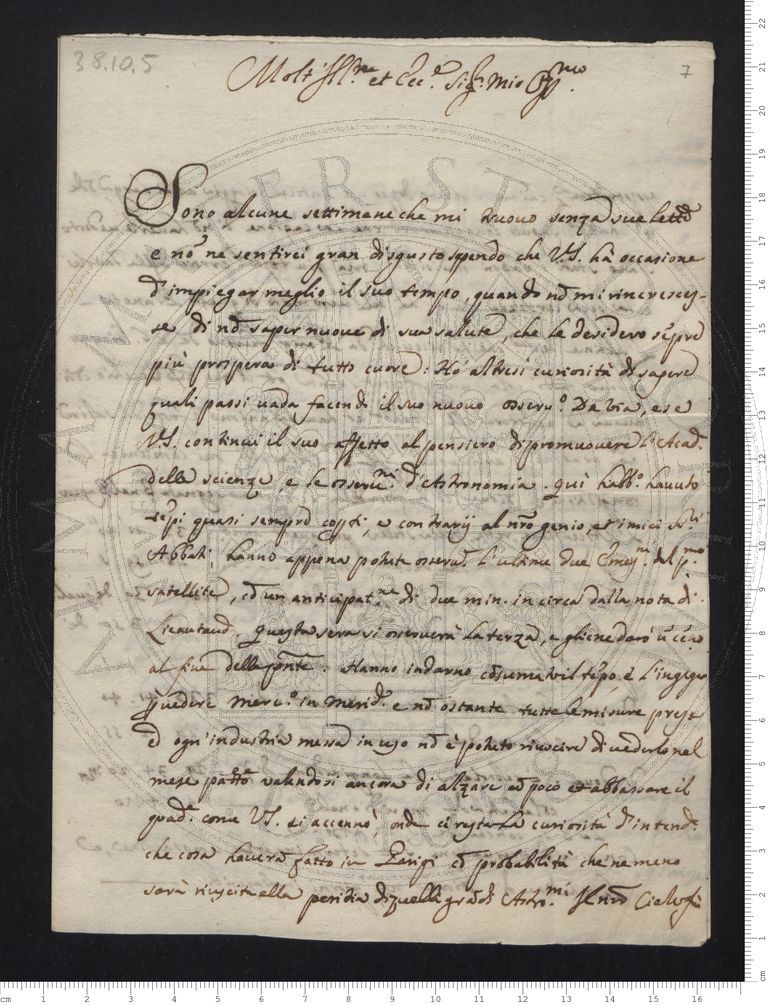 38.10.5
7
Molt' Ill.re et Ecc.te Sig.r Mio
Sono alcune settimane che mi truovo senza sue lett.e
e nō ne sentirei gran disgusto sapendo che V.S. hà occasione
d'impiegar meglio il suo tempo, quando nō mi rincresces-
se di nō saper nuove di sua salute, che le desidero sēpre
più prospera di tutto cuore: Hò altresi curiosità di sapere
quali passi vada facendo il suo nuovo osserv.o Da Via, e se
V.S. continui il suo affetto al pensiero di promuovere l'Acad.
delle scienze, e le osserv.ni d'Astronomia. Quì habb.o havuto
tēpi quasi sempre copti, e contrarij al nr̄o genio, et i miei S.ri
Abbati hanno appena potute osserv.e l'ultime due Emers.ni del p.mo
satellite, cō un anticipat.ne di due min. in circa dalla nota di
Lieautaud. Questa sera si osserverà la terza, e gliene darò ū cēno
al fine della p̄nte. Hanno indarno cōsumato il tēpo, e l'ingegno
p vedere Merc.o in Merid.o e nō ostante tutte le misure prese
ed ogn'industria messa in uso nō è potuto riuscire di vederlo nel
mese pass.to valendosi ancora di alzare un poco et abbassare il
quad.e come V.S. ci accennò, onde ci resta la curiosità d'intend.e
che cosa haverà fatto in Parigi cō probabilità che ne meno
sarà riuscita alla perizia di quelli grādi Astro.mi Il nr̄o Cielo